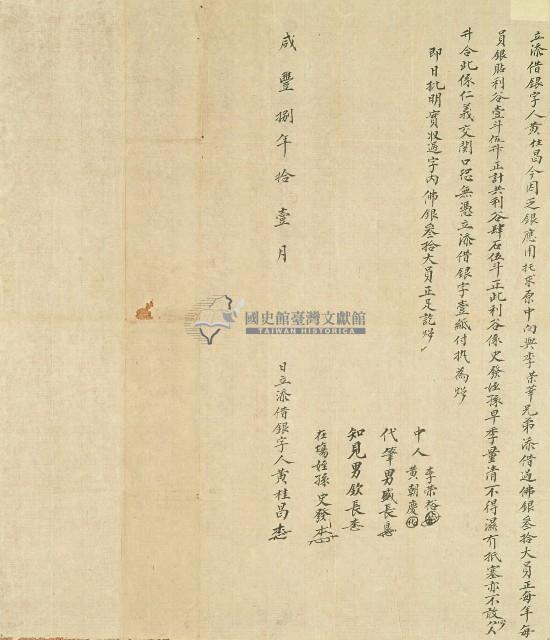 立添借銀字人黃桂昌今因乏銀應用托求原中向與李榮華兄弟添借過佛銀叁拾大員正每年每
員銀貼利谷壹斗伍升正計共利谷肆石伍斗正此利谷係史發姪孫早季量清不得濕冇抵塞亦不敢少欠
升合此係仁義交関口恐無憑立添借銀字壹紙付执為炤
即日批明實收過字内佛銀叁拾大員正足訖炤
中人 李榮裕
黃朝慶
代筆男盛長
知見男欽長
在塲姪孫史發
咸豐捌年拾壹月 日立添借銀字人黃桂昌
國史館臺灣文獻館
TAIWAN HISTORICA